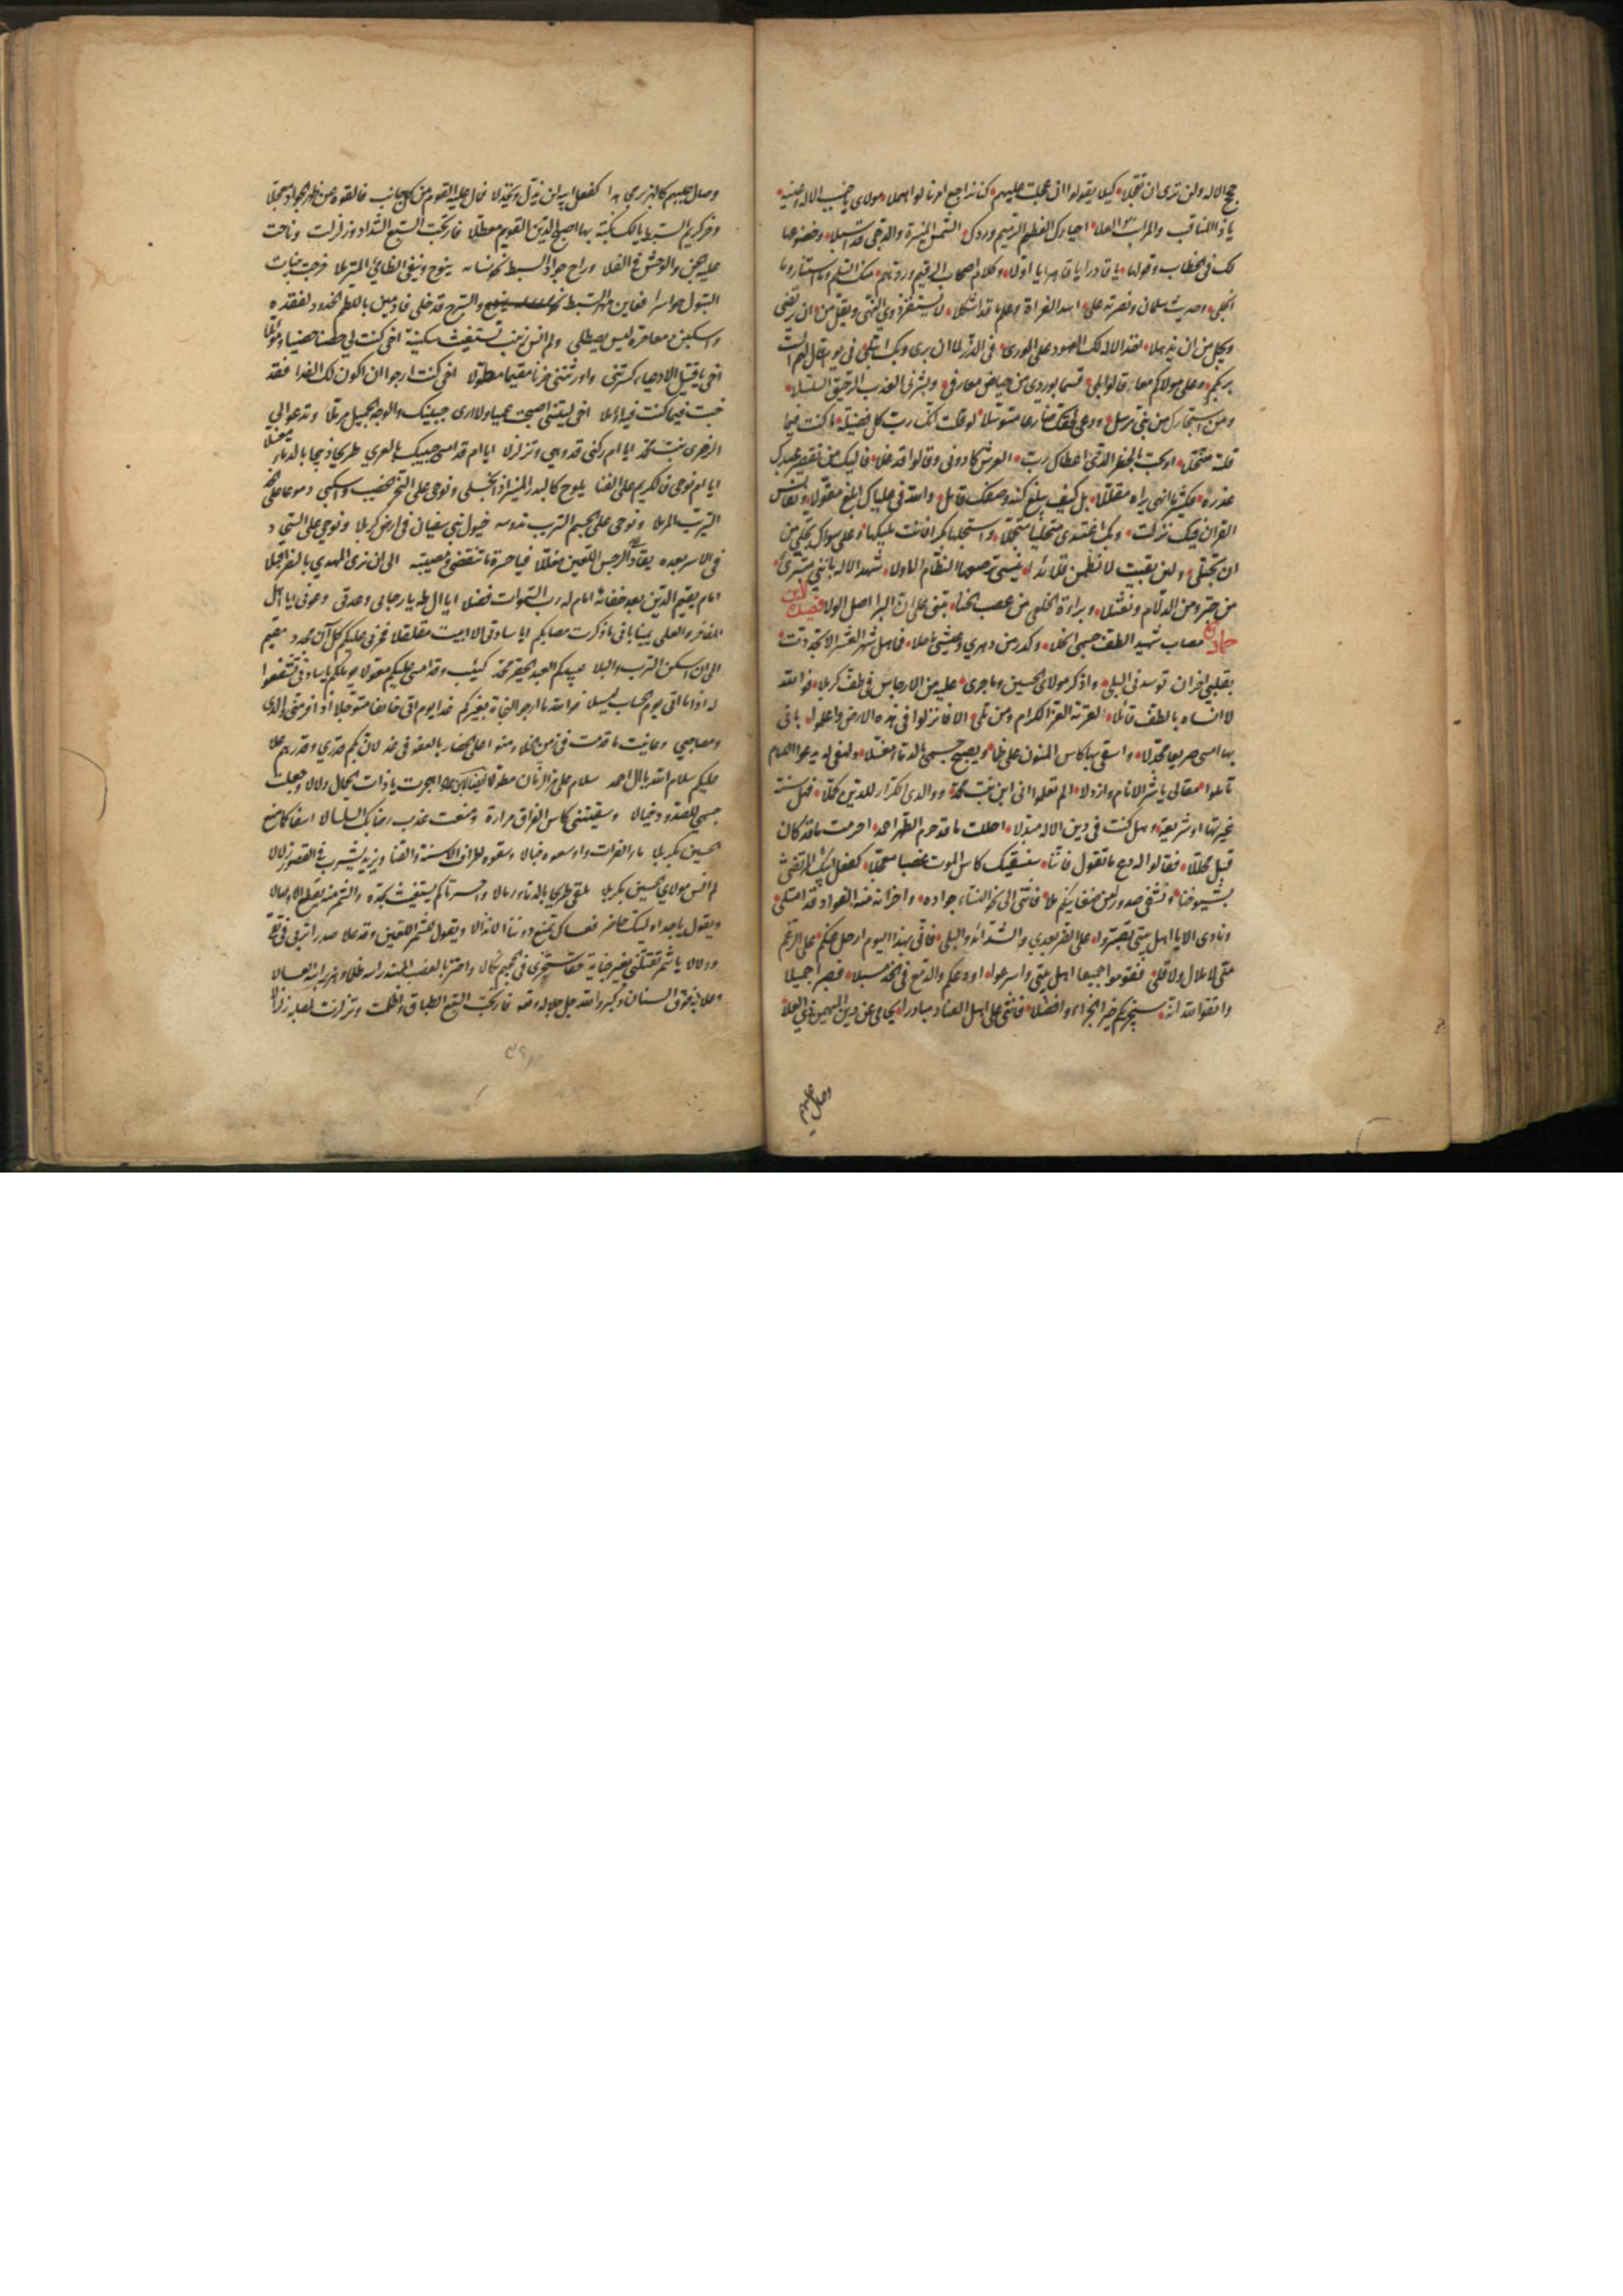 حجج الاله ولن ترى ان تقبلا كيلا يقولوا ان عجلت عليهم كنا نراجع امرنا لو امهلا مولاي يا جنب الاله وعينه
يا ذا المناقب والمراتب والعلا احياؤك العظم الرميم وردك الشمس المنيرة والدجى قد اسبلا وخضوعها
لك في الخطاب وقولها يا قادرا يا قاهرا يا اولا وكلام اصحاب الرقيم وردهم منك السلام وما استنار وما
انجلى وحديث سلمان ونصرته على اسد الفراة وعلم ما قد اشكلا لا يستفز ذوي النهى ويقل من ان يرتضى
ويجل من ان يذهلا اخذ الاله لك العهود على الورى في الذر لما ان برى وبك ابتلى في يوم قال لهم الست
بربكم وعلي مولاكم معا قالوا بلى قسما بوردي من حياض معارفي وبشربي العذب الرحيق السلسلا
ومن استجارك من نبي مرسل ودعا بحقك ضارعا متوسلا لو قلت انك رب كل فضيلة ما كنت فيما
قلته متنحلا او بحت بالخطر الذي اعطاك رب العرش كادوني وقالوا قد غلا فاليك من تقصير عبدك
عذره فكثير ما انهى يراه مقللا بل كيف يبلغ كنه وصفك قائل والله في علياك ابلغ مقولا ونفائس
القران فيك نزلت وبك اغتدى متحليا متجملا فاستجلها بكرا فانت مليكها وعلى سواك تجل من
ان تجتلى ولئن بقيت لانظمن قلائدا ينسي ترصعها النظام الاولا شهد الاله بانني متبرئ
من حبتر ومن الدلام ونعثلا وبراءة الخلعي من عصب الخنا تبنى على ان البرا اصل الولا قصيدة لابن
حماد مصاب شهيد الطف جسمي انحلا وكدر من دهري وعيشي ما حلا فما هل شهر العشر الا تجددت
بقلبي احزان توسدني البلى واذكر مولاي الحسين وما جرى عليه من الارجاس في طف كربلا فوالله
لا انساه بالطف قائلا لعترته الغر الكرام ومن تلى الا فانزلوا في هذه الارض واعلموا باني
بها امسي صريعا مجدلا واسقى بها كاس المنون على ظما ويصبح جسمي بالدماء مغسلا ولهفي له يدعو اللئام
تاملوا مقالي يا شر الانام وارذلا الم تعلموا اني ابن بنت محمد ووالدي الكرار للدين كملا فهل سنة
غيرتها او شريعة وهل كنت في دين الاله مبدلا احللت ما قد حرم الطهر احمد احرمت ما قد كان
قبل محللا فقالوا له دع ما تقول فاننا سنسقيك كاس الموت غصبا معجلا كفعل ابيك المرتضى
بشيوخنا ونشفي صدورا من ضغاينكم ملا فانثنى الى نحو النساء جواده واحزانه منها الفؤاد قد امتلى
ونادى الا يا اهل بيتي تصبروا على الضر بعدي والشدائد والبلى فاني بهذا اليوم ارحل عنكم على الرغم
مني لا ملال ولا قلى فقوموا جميعا اهل بيتي واسرعوا اودعكم والدمع في الخد مسبلا فصبرا جميلا
واتقوا الله انه سيجزيكم خير الجزاء وافضلا فانثنى على اهل العناد مبادرا يحامي عن دين المهيمن ذي العلا
وصال عليهم
وصال عليهم كالهزبر مجاهدا كفعل ابيه لن يزل ويخذلا فمال عليه القوم من كل جانب فالقوه عن ظهر الجواد معجلا
وخر كريم السبط يا لك نكبة بها اصبح الدين القويم معطلا فارتجت السبع الشداد وزلزلت وناحت
عليه الجن والوحش في الفلا وراح جواد السبط نحو نسائه ينوح وينعى الظامئ المترملا خرجن بنيات
البتول حواسرا فعاين مهر السبط والسرج قد خلى فادمين باللطم الخدود لفقده
واسكبن دمعا حره ليس يصطلى ولم انس زينب تستغيث سكينة اخي كنت لي حصنا حصينا وموئلا
اخي يا قتيل الادعياء كسرتني واورثتني حزنا مقيما مطولا اخي كنت ارجو ان اكون لك الفدا فقد
خبت فيما كنت فيه اؤملا اخي ليتني اصبحت عميا ولا ارى جبينك والوجه الجميل مرملا وتدعو الى
الزهرى بنت محمد ايا ام ركني قد وهى وتزلزلا ايا ام قد امسى حبيبك بالعرى طريحا ذبيحا بالدماء مغسلا
ايا ام نوحي فالكريم على القنا يلوح كالبدر المنير اذ انجلى ونوحي على النحر الخضيب واسكبي دموعا على الخد
التريب المرملا ونوحي على الجسم التريب تدوسه خيول بني سفيان في ارض كربلا ونوحي على السجاد
في الاسر بعده يقاد الى الرجس اللعين مغللا فيا حسرة ما تنقضي ومصيبة الى ان نرى المهدي بالنصر اقبلا
امام يقيم الدين بعد خفائه امام له رب السموات فضلا ايا ال طه يا رجائي وعدتي وعوني ايا اهل
المفاخر والعلى يمينا باني ما ذكرت مصابكم ايا سادتي الا ابيت مقلقلا فحزني عليكم كل آن مجدد مقيم
الى ان اسكن الترب والبلا عبيدكم العبد الحقير محمد كئيب وقد امسى عليكم معولا يؤملكم يا سادتي تشفعوا
له اذا ما اتى يوم الحساب ليسلا فوالله ما ارجو النجاة بغيركم غدا يوم اتي خائفا متوجلا اذا فر مني والدي
ومصاحبي وعاينت ما قدمت في زمن الخلا ومنوا على الحضار بالعفو في غد لان بكم قدري وقدرهم علا
عليكم سلام الله يا ال احمد سلام على مر الزمان مطولا ايضا لابن حماد اهجرت يا ذات الجمال دلالا وجعلت
جسمي للصدود خيالا وسقيتني كاس الفراق مرارة ومنعت عذب رضابك السلسالا اسفا كما منع
الحسين بكربلا ماء الفرات واوسعوه خبالا وسقوه اطراف الاسنة والقنا ويزيد يشرب في القصور زلالا
لم انس مولاي الحسين بكربلا ملقى طريحا بالدماء رمالا واحسرتا كم يستغيث بجده والشمر منه يقطع الاوصالا
ويقول يا جداه ليتك حاضر فعساك تمنع دوننا الانذالا ويقول للشمر اللعين وقد علا صدرا تربى في تقى
ودلالا يا شمر تقتلني بغير جناية حقا ستجزى في الجحيم نكالا واجتز بالعضب المهند راسه ظلما وهز براسه العسالا
وعلا به فوق السنان وكبروا لله جل جلاله وتعالى فارتجت السبع الطباق واظلمت وتزلزلت لمصابه زلزالا